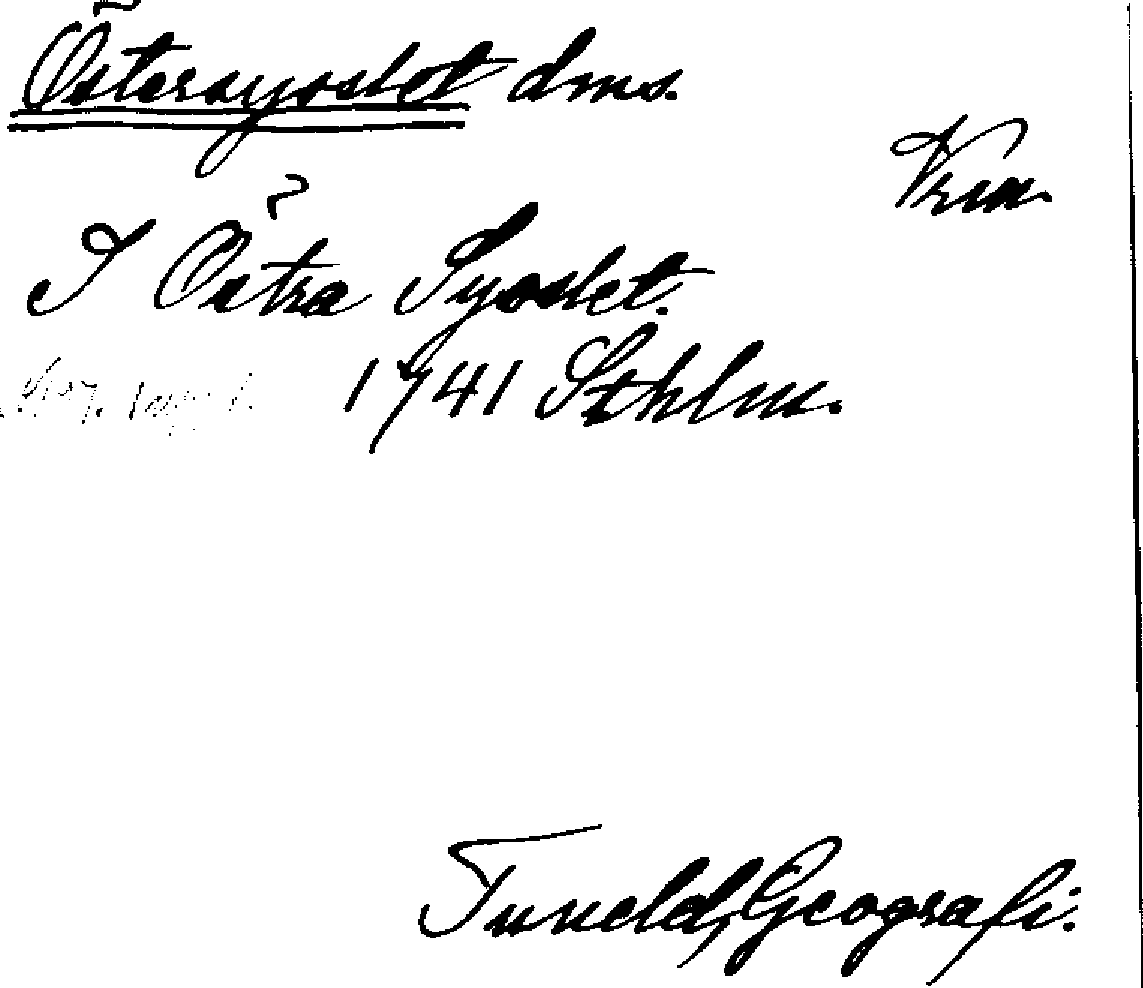 Östersysslet dms.
Vrm.
I Östra Sysslet.
1741 Sthlm.
Tuneld, Geografi.